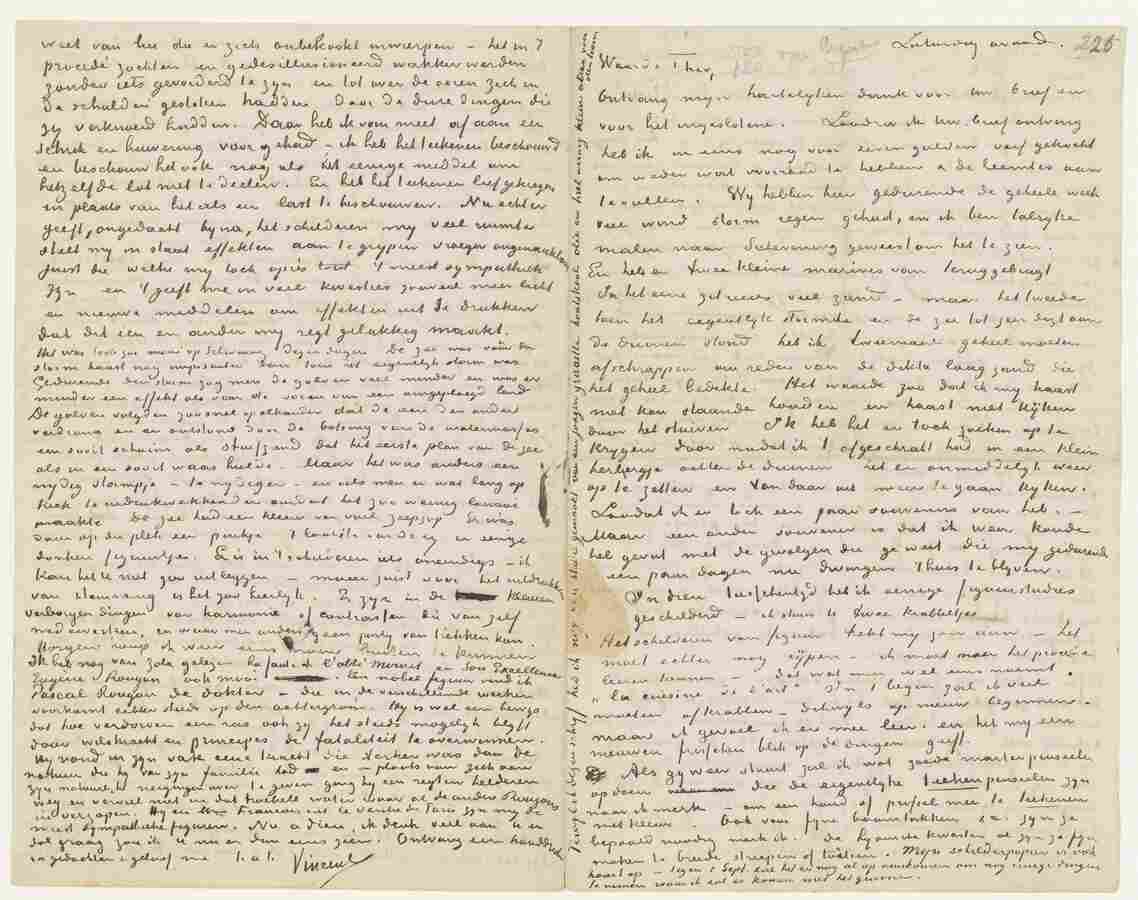 weet van hen die er zich onbekookt inwierpen – het in 't
procédé zochten en gedesillusioneerd wakker werden
zonder iets gevorderd te zijn en tot over de ooren zich in
de schulden gestoken hadden door de dure dingen die
zij verknoeid hadden. Daar heb ik van meet af aan een
schrik en huivering voor gehad – ik heb het teekenen beschouwd
en beschouw het ook nog als het eenige middel om
hetzelfde lot niet te deelen. En heb het teekenen lief gekregen
in plaats van het als een last te beschouwen. Nu echter
geeft, ongedacht bijna, het schilderen mij veel ruimte
stelt mij in staat effekten aan te grijpen vroeger ongenaakbaar
juist die welke mij toch 't meest sympathiek
zijn en 't geeft me in veel kwesties zooveel meer licht
en nieuwe middelen om effekten uit te drukken
dat dit een en ander mij regt gelukkig maakt.
Het was toch zoo mooi op Scheveningen dezer dagen. De zee was vóór den
storm haast nog imposanter dan toen het eigentlijk storm was
Gedurende den storm zag men de golven veel minder en was er
minder een effekt als van de voren van een omgeploegd land
De golven volgden zoo snel op elkander dat de een den ander
verdrong en er ontstond door de botsing van de watermassa's
een soort schuim als stuifzand dat het eerste plan van de zee
als in een soort waas hulde. Maar het was anders een
nijdig stormpje – te nijdiger – en als men er wat lang op
keek te indrukwekkender omdat het zoo weinig lawaai
maakte. De zee had een kleur van vuil zeepsop Er was
daar op die plek een pinkje 't laatste van de rij en eenige
donkere figuurtjes. Er is in 't schilderen iets oneindigs – ik
kan het U niet zoo uitleggen – maar juist voor het uitdrukken
van stemming is het zoo heerlijk. Er zijn in de kleuren
verborgen dingen van harmonie of contrasten die van zelf
meewerken, en waar men anders geen partij van trekken kan
Morgen hoop ik weer eens naar buiten te kunnen
Ik heb nog van Zola gelezen La faute de l'abbé Mouret en Son Excellence
Eugène Rougon ook mooi. Een nobel figuur vind ik
Pascal Rougon de dokter – die in de verschillende werken
voorkomt echter steeds op den achtergrond. Hij is wel een bewijs
dat hoe verdorven een ras ook zij het steeds mogelijk blijft
door wilskracht en principes de fataliteit te overwinnen.
Hij vond in zijn vak eene kracht die sterker was dan de
natuur die hij van zijn familie had en – in plaats van zich aan
zijn natuurlijke neigingen over te geven ging hij een regten helderen
weg en verviel niet in dat troebele water waar al de andere Rougons
in verzopen. Hij en Mme François uit le Ventre de Paris zijn mij de
meest sympathieke figuren. Nu adieu, ik denk veel aan U en
zal graag zou ik U nu en dan eens zien. Ontvang een handdruk
in gedachten & geloof me t. à t.
Vincent
Saturday avond. 225
Waarde Theo,
Ontvang mijn hartelijken dank voor Uw brief en
voor het ingeslotene. Zoodra ik Uw brief ontving
heb ik in eens nog voor zeven gulden verf gekocht
om weder wat voorraad te hebben & de leemten aan
te vullen. Wij hebben hier gedurende de geheele week
veel wind storm regen gehad, en ik ben talrijke
malen naar Scheveningen geweest om het te zien.
En heb er twee kleine marines van teruggebragt
In het eene zit reeds veel zand – maar het tweede
toen het eigentlijk stormde en de zee tot zeer digt aan
de duinen stond heb ik tweemaal geheel moeten
afschrappen om reden van de dikke laag zand die
het geheel bedekte. Het waaide zoo dat ik mij haast
niet kon staande houden en haast niet kijken
door het stuiven. Ik heb het er toch zoeken op te
krijgen door nadat ik 't afgeschrabt had in een klein
herbergje achter de duinen het er onmiddelijk weer
op te zetten en van daar uit weer te gaan kijken.
Zoodat ik er toch een paar souvenirs van heb. –
Maar een ander souvenir is dat ik weer koude
heb gevat met de gevolgen die ge weet die mij gedurende
een paar dagen nu dwingen thuis te blijven.
In dien tusschentijd heb ik eenige figuurstudies
geschilderd – ik stuur U twee krabbeltjes
Het schilderen van figuur trekt mij zeer aan – het
moet echter nog rijpen – ik moet meer het procédé
leeren kennen – dat wat men wel eens noemt
"la cuisine de l'art". In 't begin zal ik veel
moeten afkrabben – dikwijls op nieuw beginnen.
maar ik gevoel ik er mee leer. en het mij een
nieuwen frisschen blik op de dingen geeft.
Als gij weer stuurt zal ik wat goede marterpenseelen
opdoen die de eigentlijke teekenpenseelen zijn
naar ik merk – om een hand of profiel mee te teekenen
met kleur. Ook voor fijne boomtakken &c. zijn ze
bepaald noodig merk ik. De Lyonsche kwasten al zijn ze fijn
maken te breede streepen of toetsen. Mijn schilderpapier is ook
haast op – tegen 1 Sept.